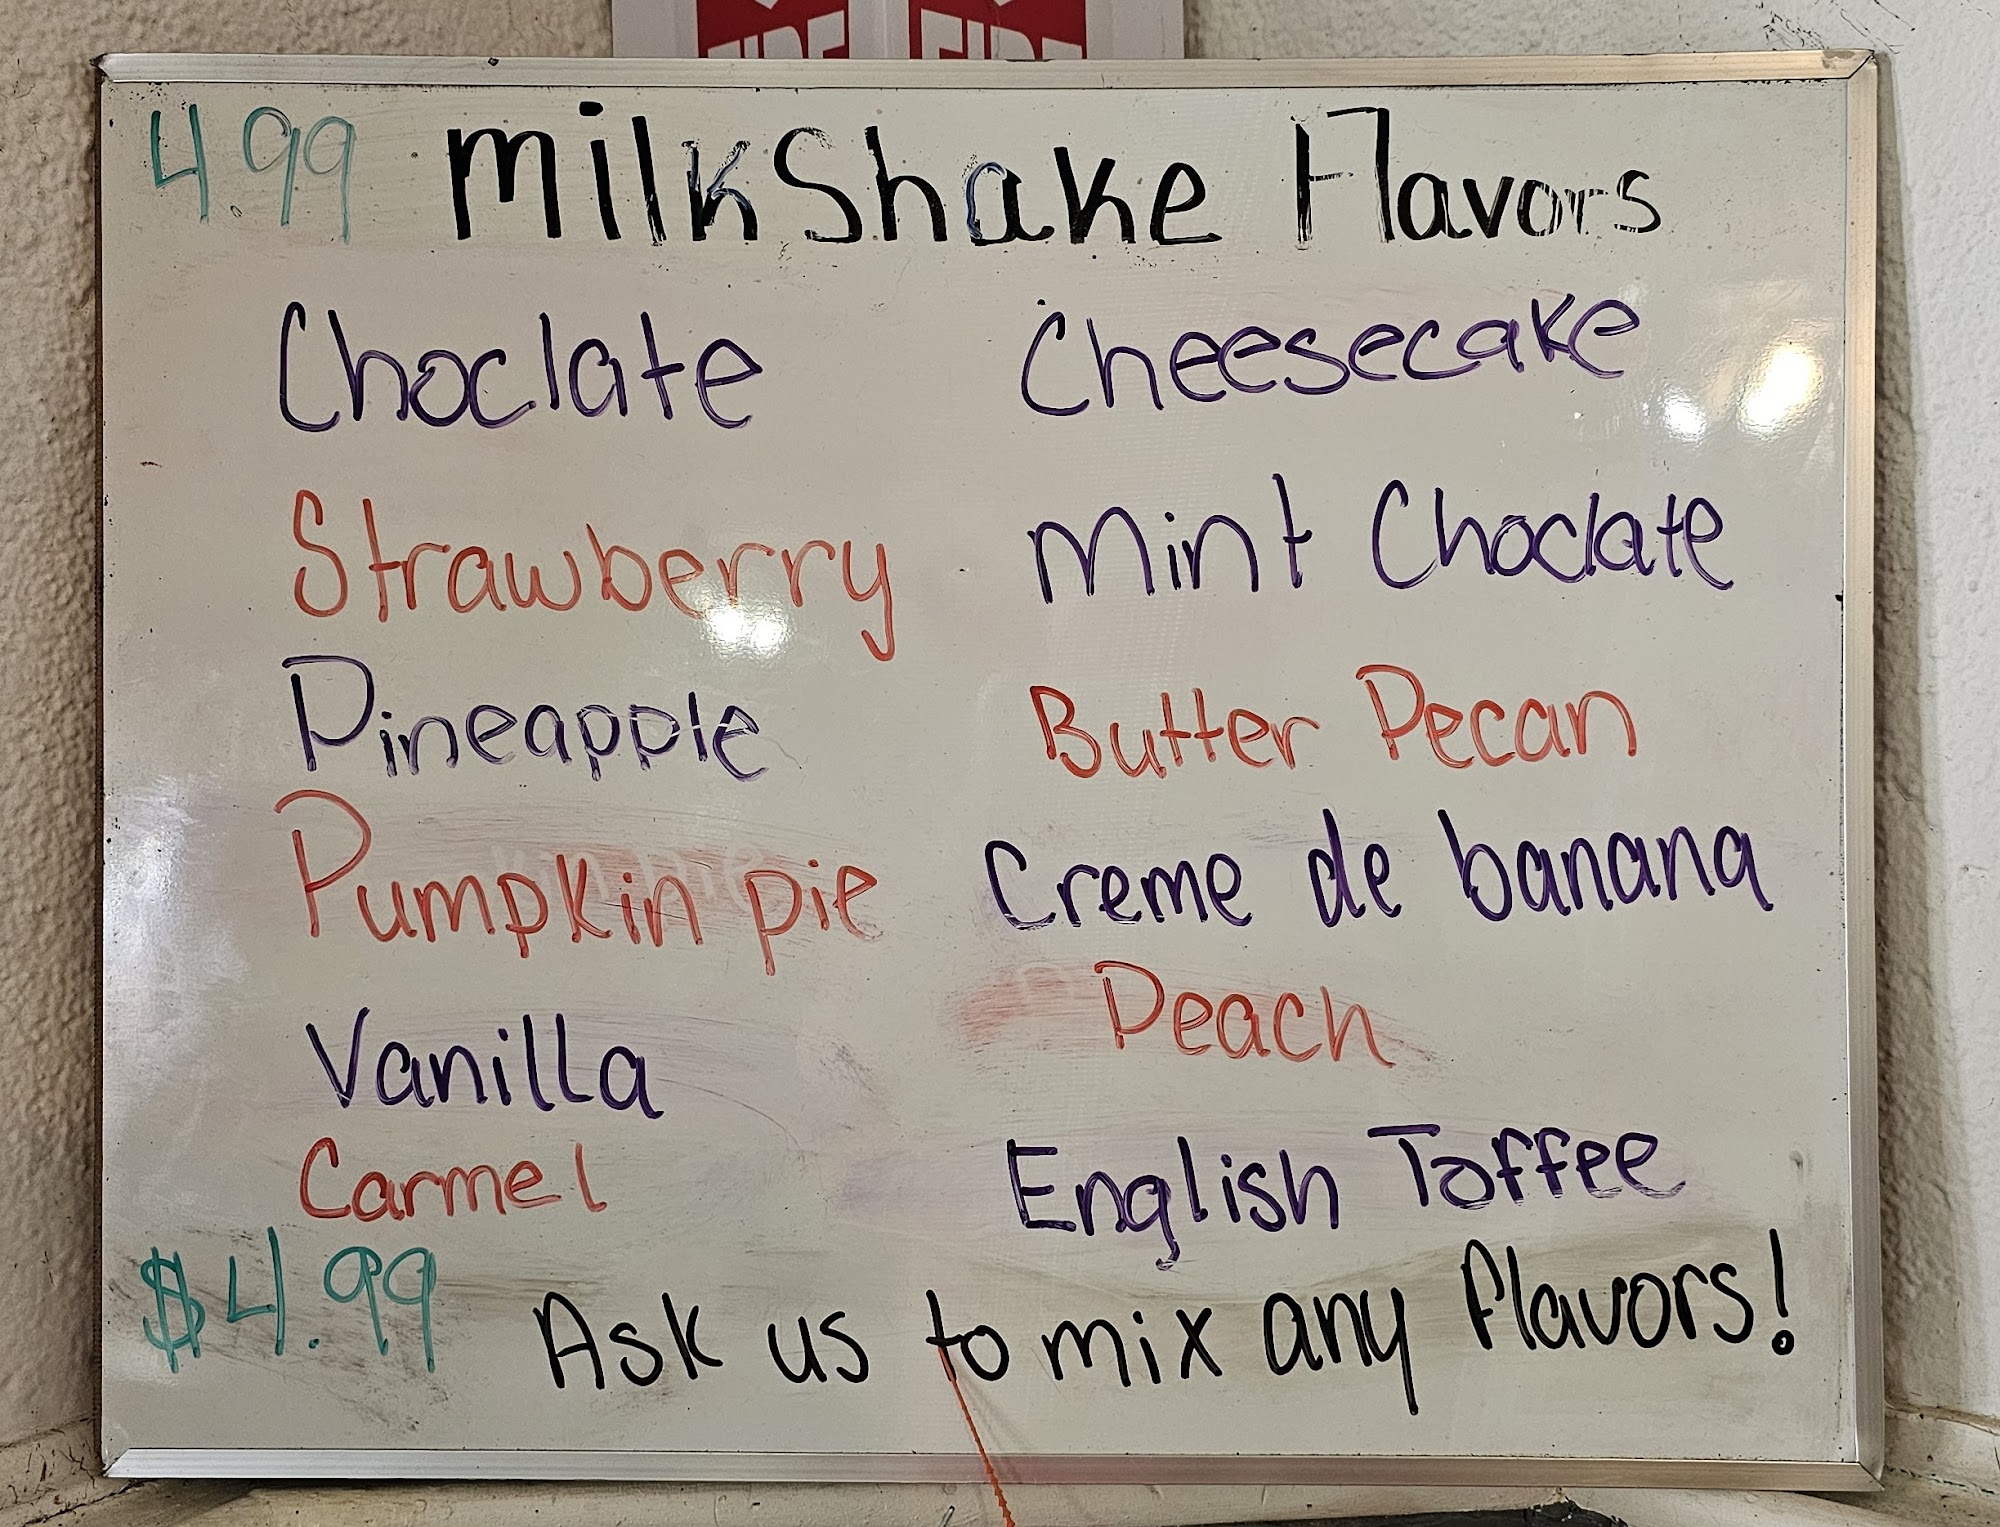 FIRE FIRE
4.99 MilkShake Flavors
Choclate
Strawberry
Pineapple
Pumpkin pie
Vanilla
Carmel
Cheesecake
Mint Choclate
Butter Pecan
Creme de banana
Peach
English Toffee
$4.99 Ask us to mix any flavors!